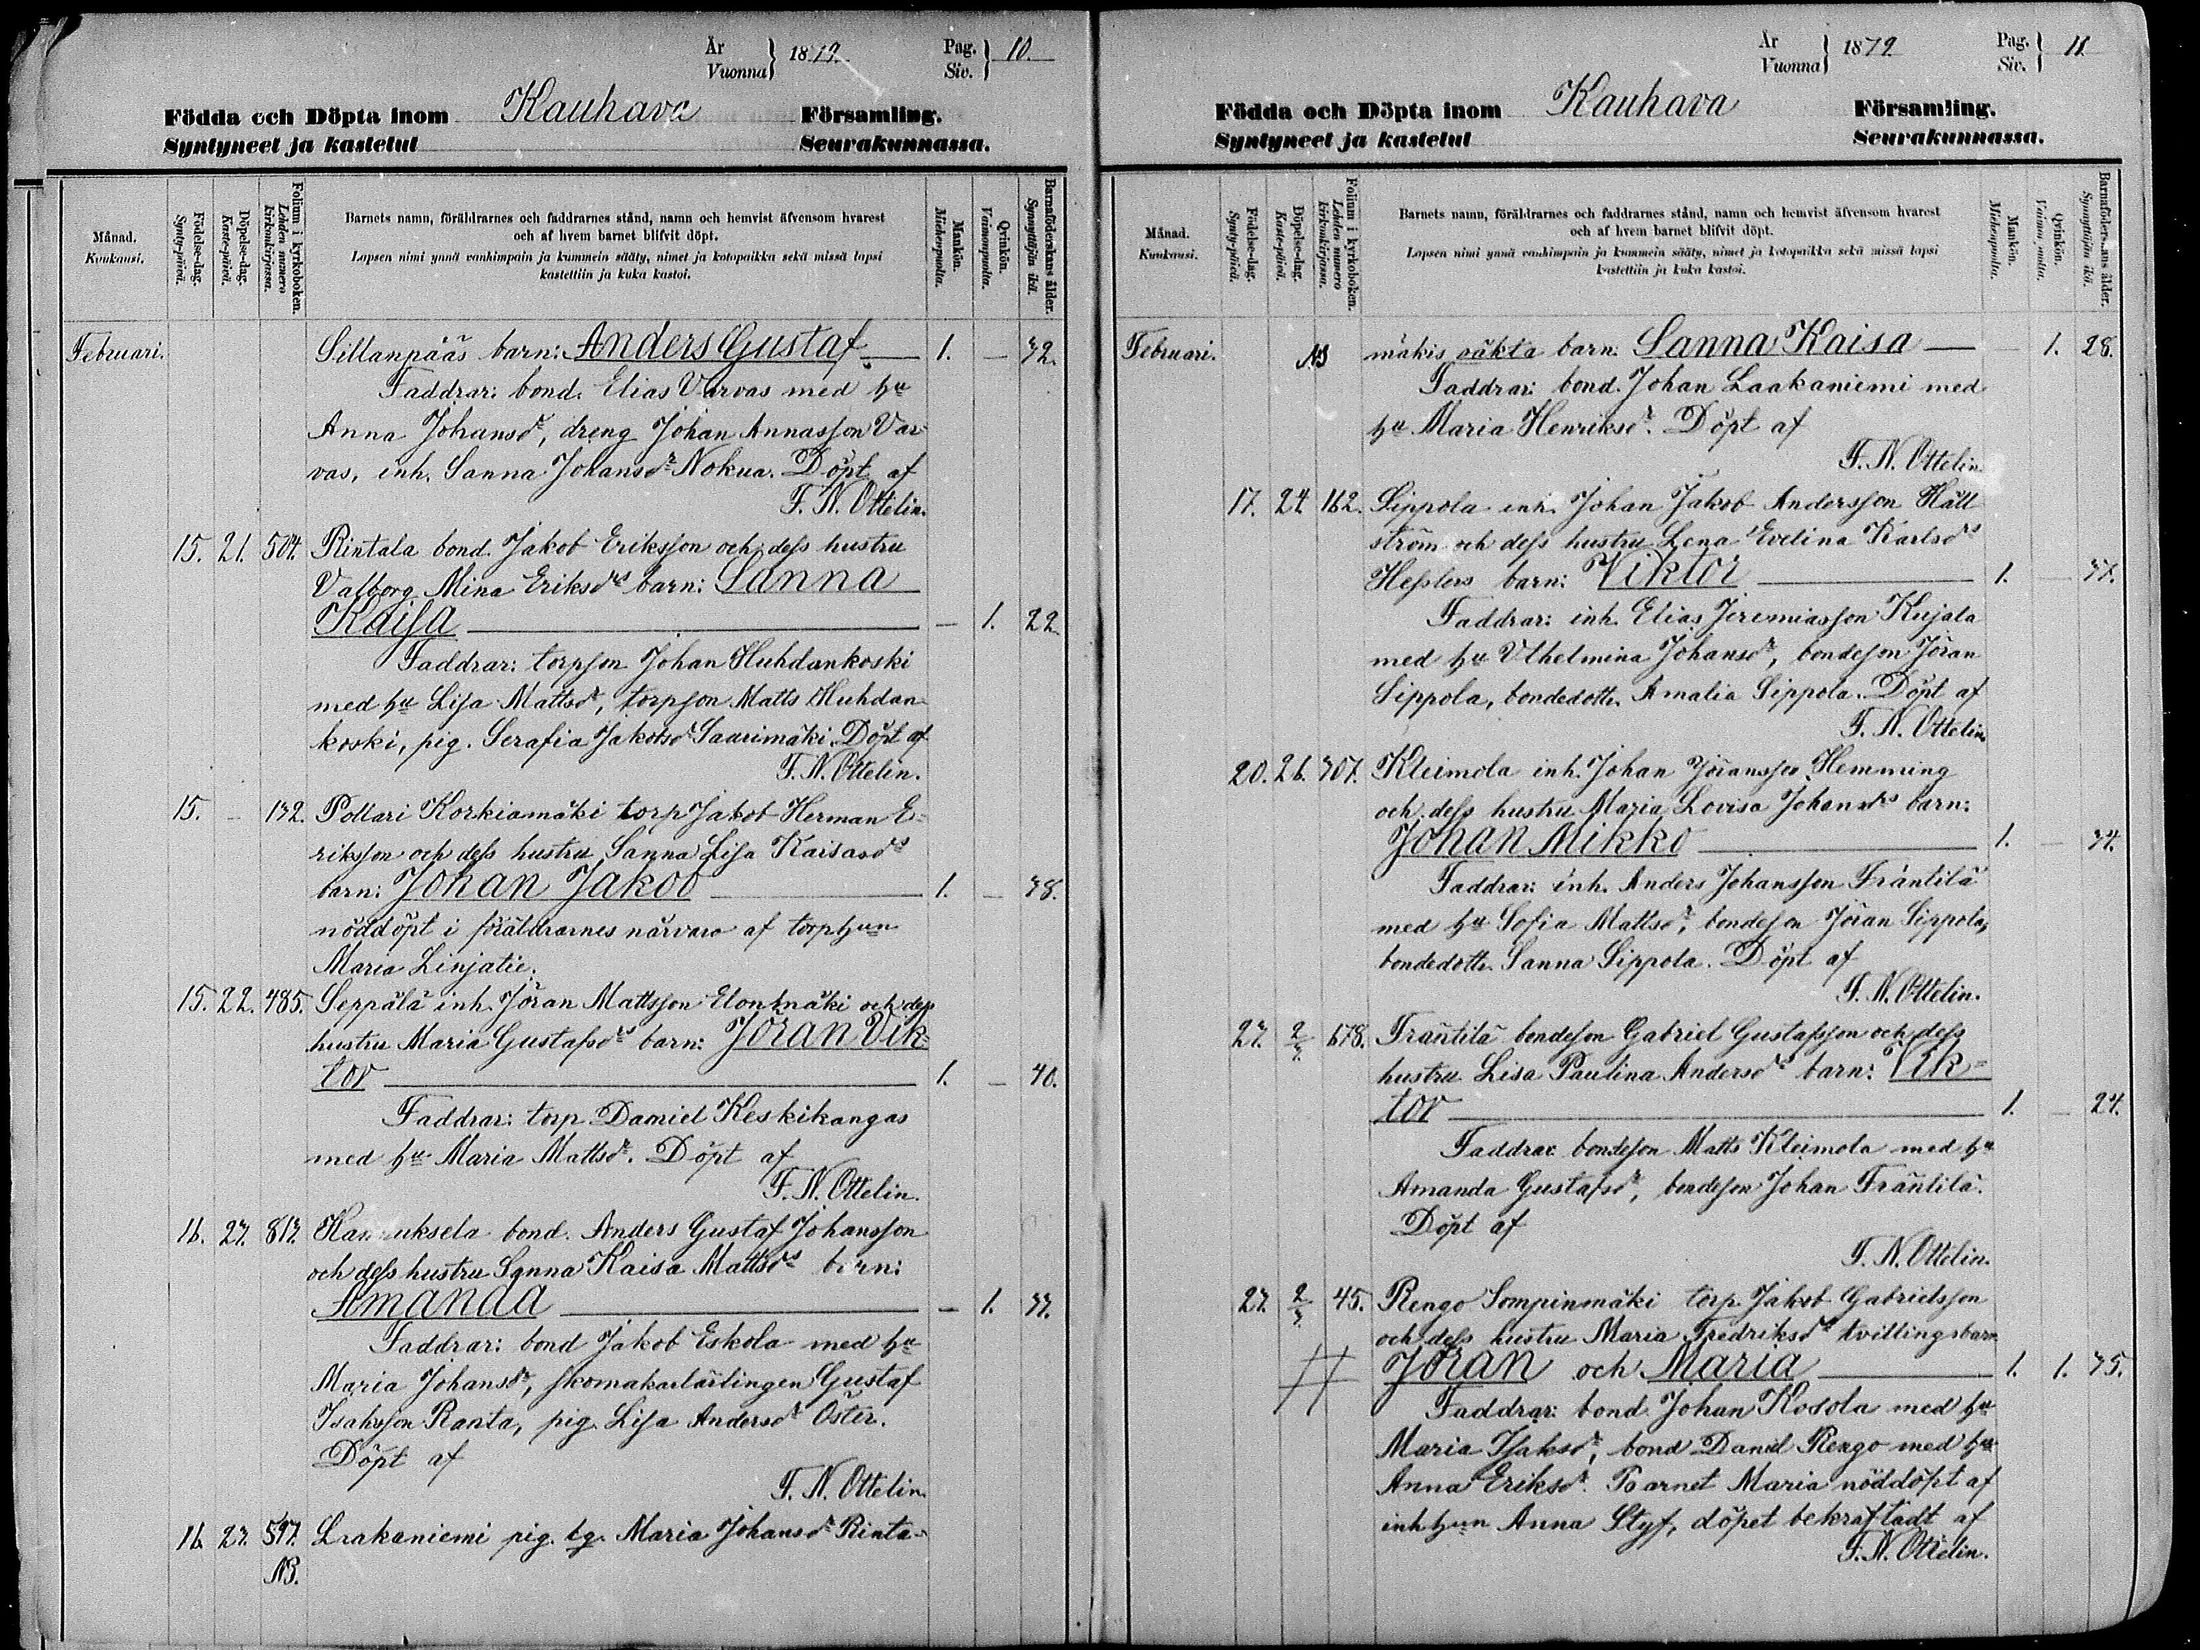 År
Vuonna
1879.
Pag.
Siv.
10.
Födda och Döpta inom Kauhava Församling.
Syntyneet ja kastetut Seurakunnassa.
Månad.
Kuukausi.
Födelse-dag.
Synty-päivä.
Döpelse-dag.
Kaste-päivä.
Folium i kyrkoboken.
Lehden numero kirkonkirjassa.
Barnets namn, föräldrarnes och faddrarnes stånd, namn och hemvist äfvensom hvarest
och af hvem barnet blifvit döpt.
Lapsen nimi ynnä vanhimpain ja kummein sääty, nimet ja kotopaikka sekä missä lapsi
kastettiin ja kuka kastoi.
Mankön.
Miehenpuolta.
Qvinkön.
Vaimonpuolta.
Barnaföderskans ålder.
Synnyttäjän ikä.
Februari. Sillanpääs barn: Anders Gustaf 1. — 32.
Faddrar: bond. Elias Varvas med hu
Anna Johansdr, dreng Johan Annasson Var-
vas, inh. Sanna Johansdr Nokua. Döpt af
F. N. Ottelin.
15. 21. 504. Rintala bond. Jakob Eriksson och dess hustru
Valborg Mina Eriksdrs barn: Sanna
Kaisa — 1. 22.
Faddrar: torpson Johan Huhdankoski
med hu Lisa Mattsdr, torpson Matts Huhdan-
koski, pig. Serafia Jakobsdr Saarimäki. Döpt af
F. N. Ottelin.
15. — 132. Pollari Korkiamäki torp Jakob Herman E-
riksson och dess hustru Sanna Lisa Kaisasdrs
barn: Johan Jakob 1. — 38.
nöddöpt i föräldrarnes närvaro af torphun
Maria Linjatie.
15. 22. 485. Seppälä inh. Jöran Mattsson Elonmäki och dess
hustru Maria Gustafsdrs barn: Jöran Vik-
tor 1. — 40.
Faddrar: torp. Daniel Keskikangas
med hu Maria Mattsdr. Döpt af
F. N. Ottelin.
16. 23. 813. Hannuksela bond. Anders Gustaf Johansson
och dess hustru Sanna Kaisa Mattsdrs barn:
Amanda — 1. 33.
Faddrar: bond Jakob Eskola med hu
Maria Johansdr, skomakarlärlingen Gustaf
Isaksson Ranta, pig. Lisa Andersdr Öster.
Döpt af
F. N. Ottelin.
16. 23. 597. Laakaniemi pig. lg. Maria Johansdr Rinta-
NB.
År
Vuonna
1879.
Pag.
Siv.
11
Födda och Döpta inom Kauhava Församling.
Syntyneet ja kastetut Seurakunnassa.
Månad.
Kuukausi.
Födelse-dag.
Synty-päivä.
Döpelse-dag.
Kaste-päivä.
Folium i kyrkoboken.
Lehden numero kirkonkirjassa.
Barnets namn, föräldrarnes och faddrarnes stånd, namn och hemvist äfvensom hvarest
och af hvem barnet blifvit döpt.
Lapsen nimi ynnä vanhimpain ja kummein sääty, nimet ja kotopaikka sekä missä lapsi
kastettiin ja kuka kastoi.
Mankön.
Miehenpuolta.
Qvinkön.
Vaimonpuolta.
Barnaföderskans ålder.
Synnyttäjän ikä.
Februari. NB mäkis oäkta barn: Sanna Kaisa — 1. 28.
Faddrar: bond. Johan Laakaniemi med
hu Maria Henriksdr. Döpt af
F. N. Ottelin.
17. 24. 162. Sippola inh. Johan Jakob Andersson Häll-
ström och dess hustru Lena Evelina Karlsdrs
Hesslers barn: Viktor 1. — 37.
Faddrar: inh. Elias Jeremiasson Kujala
med hu Vilhelmina Johansdr, bondeson Jöran
Sippola, bondedottr. Amalia Sippola. Döpt af
F. N. Ottelin.
20. 26. 307. Kleimola inh. Johan Jöransson Hemming
och dess hustru Maria Lovisa Johansdrs barn:
Johan Mikko 1. — 34.
Faddrar: inh. Anders Johansson Fräntilä
med hu Sofia Mattsdr, bondeson Jöran Sippola,
bondedottr. Sanna Sippola. Döpt af
F. N. Ottelin.
23. 2/3. 678. Fräntilä bondeson Gabriel Gustafsson och dess
hustru Lisa Paulina Andersdrs barn: Vik-
tor 1. — 24.
Faddrar: bondeson Matts Kleimola med hu
Amanda Gustafsdr, bondeson Johan Fräntilä.
Döpt af
F. N. Ottelin.
23. 2/3. 45. Rengo Sompinmäki torp. Jakob Gabrielsson
och dess hustru Maria Fredriksdrs tvillingsbarn
Jöran och Maria 1. 1. 35.
Faddrar: bond. Johan Kosola med hu
Maria Isaksdr, bond Daniel Rengo med hu
Anna Eriksdr. Barnet Maria nöddöpt af
inhhun Anna Styf, döpet bekräftadt af
F. N. Ottelin.